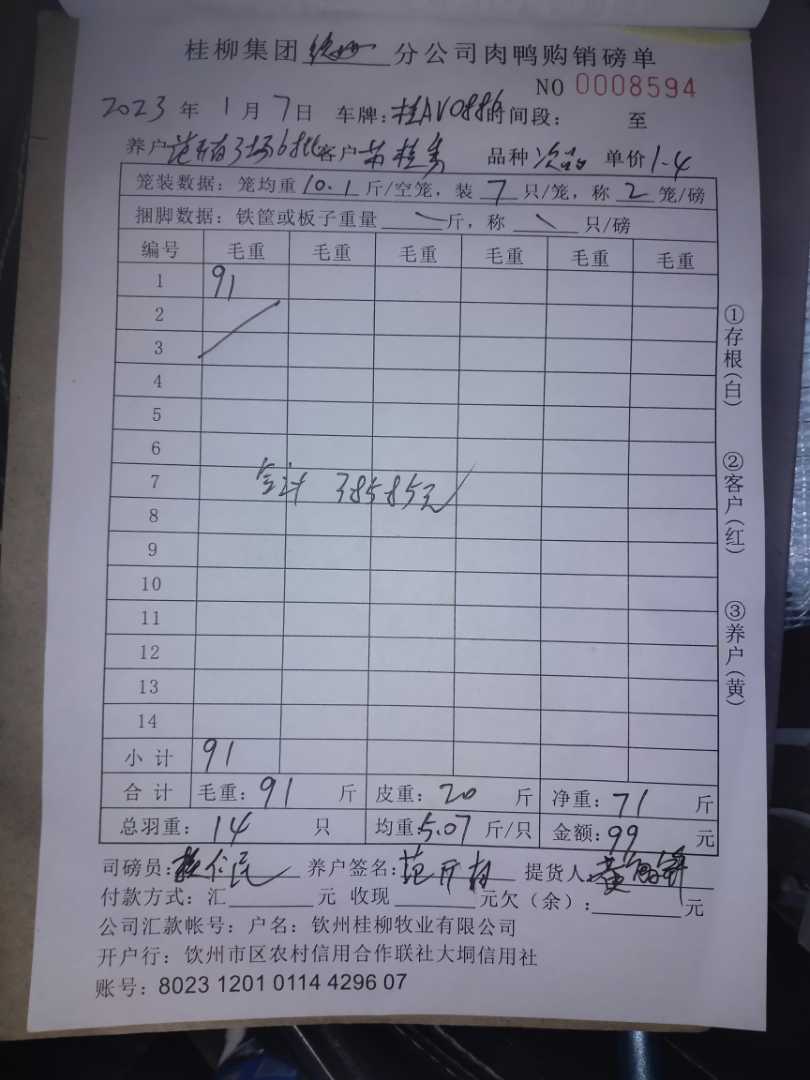 桂柳集团 分公司肉鸭购销磅单
NO 0008594
2023 年 1 月 7 日 车牌:桂AV0886 时间段: 至
养户 客户 品种 次品 单价 1.4
笼装数据:笼均重 10.1 斤/空笼,装 7 只/笼,称 2 笼/磅
捆脚数据:铁筐或板子重量 斤,称 只/磅
编号 毛重 毛重 毛重 毛重 毛重 毛重
1 91
2
3
4
5
6
7
合计 38585元
8
9
10
11
12
13
14
小计 91
合计 毛重:91 斤 皮重:20 斤 净重:71 斤
总羽重:14 只 均重:5.07 斤/只 金额:99 元
司磅员: 养户签名: 提货人:
付款方式:汇 元 收现 元欠(余): 元
公司汇款帐号:户名:钦州桂柳牧业有限公司
开户行:钦州市区农村信用合作联社大垌信用社
账号:8023 1201 0114 4296 07
①存根(白)
②客户(红)
③养户(黄)